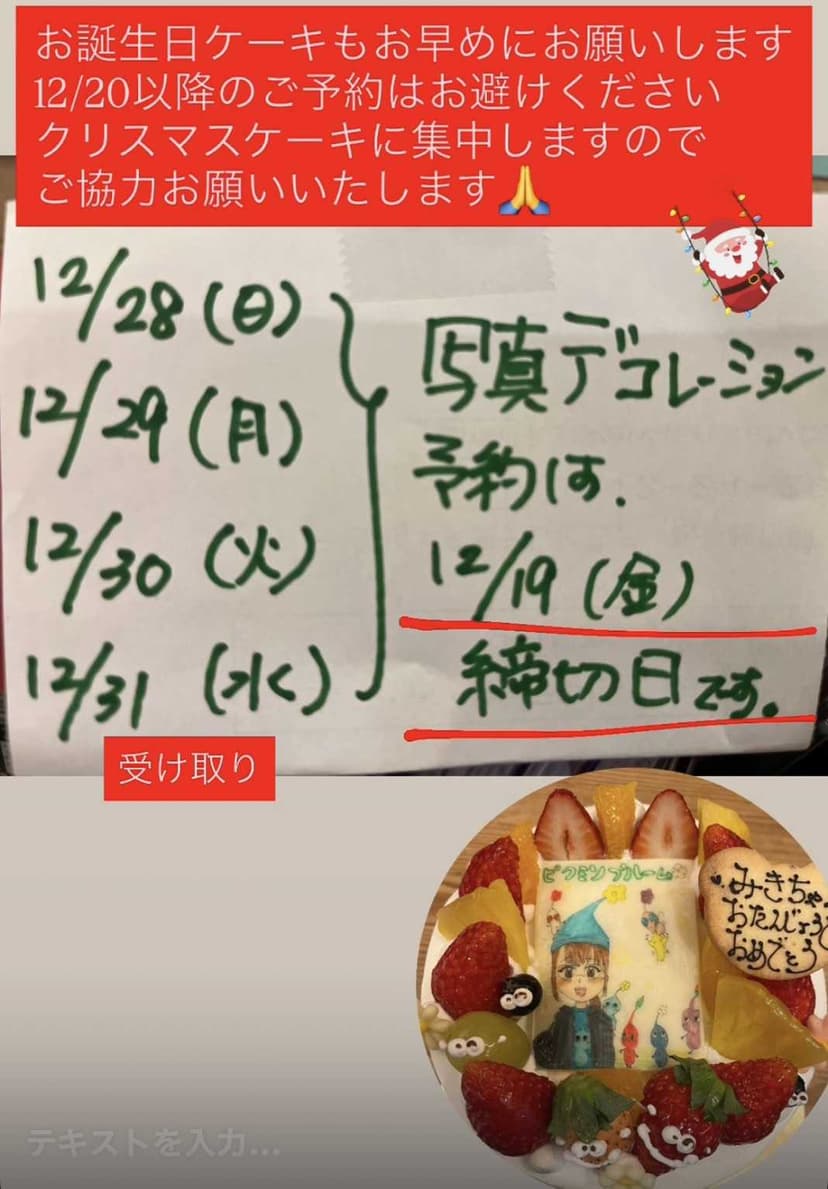 お誕生日ケーキもお早めにお願いします
12/20以降のご予約はお避けください
クリスマスケーキに集中しますので
ご協力お願いいたします🙏
12/28(日)
12/29(月)
12/30(火)
12/31(水)
写真デコレーション
予約は、
12/19(金)
締切日です。
受け取り
ピクミンブルーム
みきちゃ
おたんじょうび
おめでとう
テキストを入力...